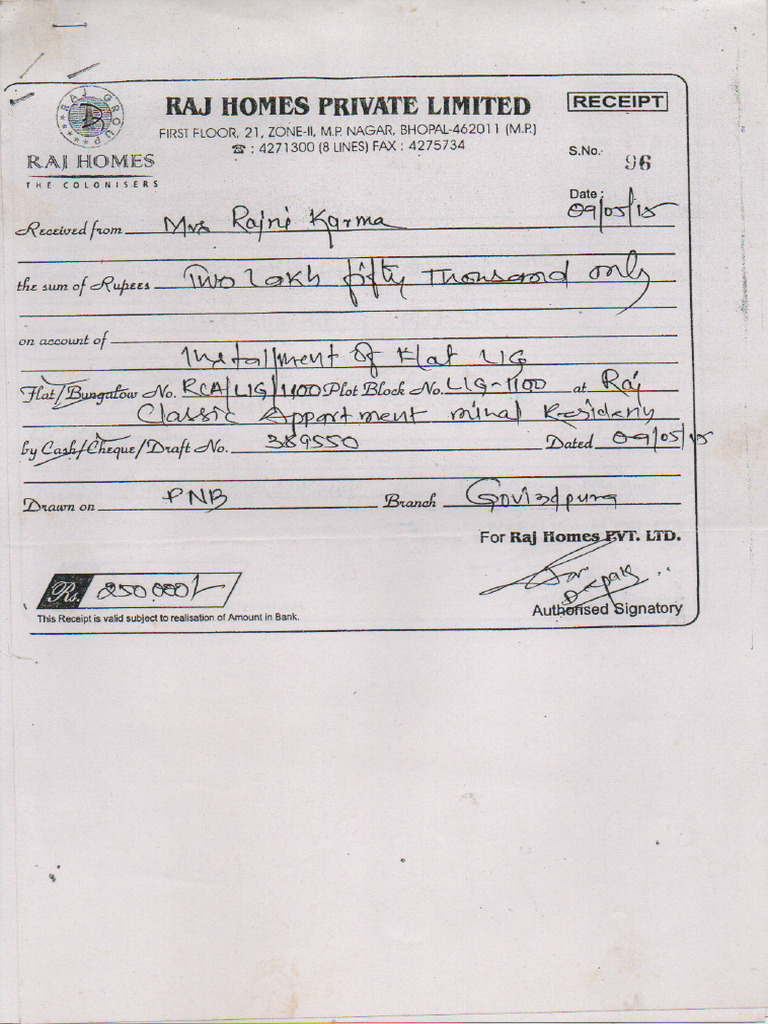 RAJ GROUP
RAJ HOMES
THE COLONISERS
RAJ HOMES PRIVATE LIMITED
FIRST FLOOR, 21, ZONE-II, M.P. NAGAR, BHOPAL-462011 (M.P.)
☎ : 4271300 (8 LINES) FAX : 4275734
RECEIPT
S.No. 96
Date : 09/05/15
Received from Mrs Rajni Karma
the sum of Rupees Two lakh fifty Thousand only
on account of
Installment of Flat LIG
Flat/Bungalow No. RCA/LIG/1100 Plot Block No. LIG-1100 at Raj
Classic Appartment minal Resideny
by Cash/Cheque/Draft No. 389550 Dated 09/05/15
Drawn on PNB Branch Govindpura
For Raj Homes PVT. LTD.
Rs. 250000/-
Deepak
Authorised Signatory
This Receipt is valid subject to realisation of Amount in Bank.